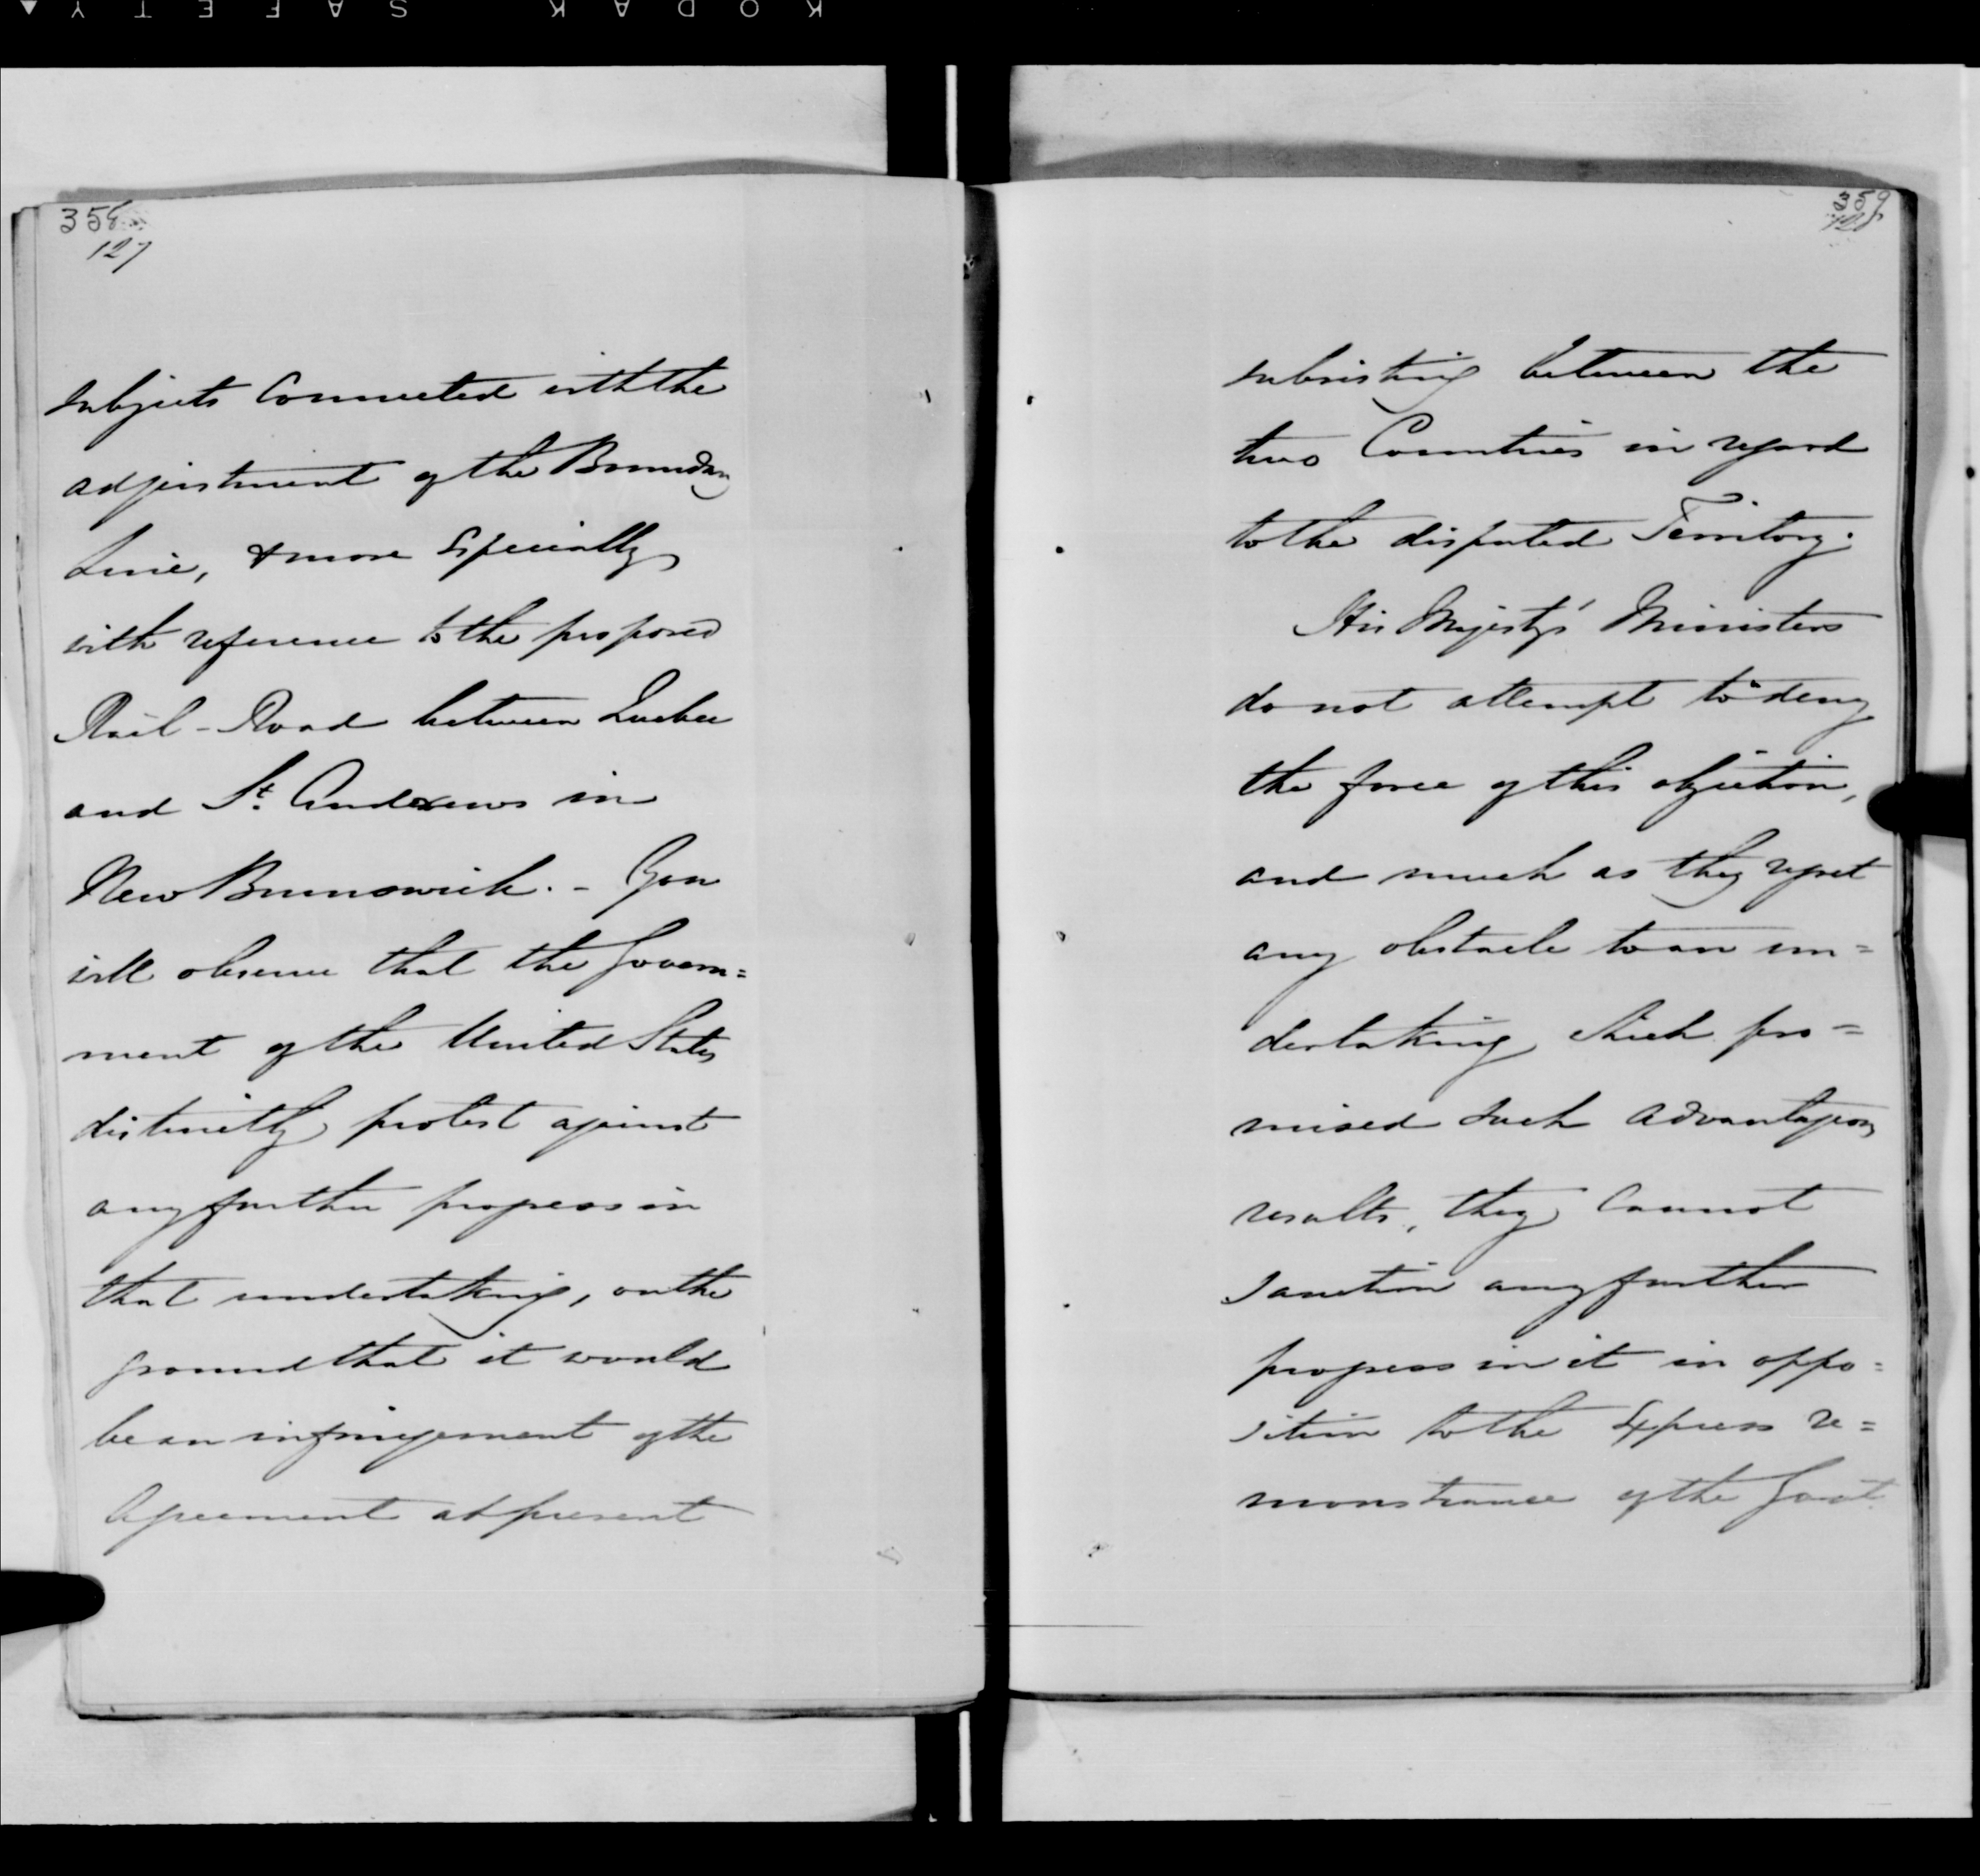 KODAK SAFETY
358
127
subjects connected with the
adjustment of the Boundary
Line, & more Especially
with reference to the proposed
Rail-Road between Quebec
and St. Andrews in
New Brunswick. - You
will observe that the Govern=
ment of the United States
distinctly protest against
any further progress in
that undertaking, on the
ground that it would
be an infringement of the
Agreement at present
359
128
subsisting between the
two Countries in regard
to the disputed Territory.
His Majesty's Ministers
do not attempt to deny
the force of this objection,
and much as they regret
any obstacle to an un=
dertaking which pro=
mised such advantageous
results, they cannot
sanction any further
progress in it in oppo=
sition to the Express re=
monstrance of the Govt.